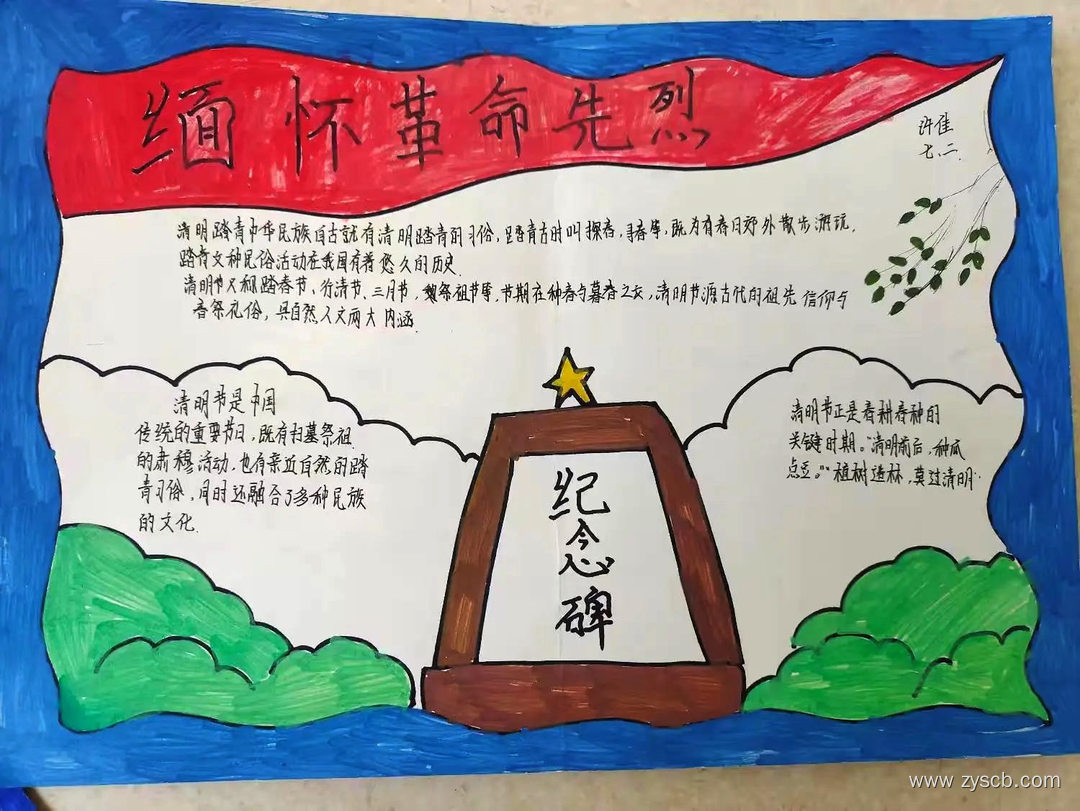 缅怀革命先烈
许佳
七.二.
清明踏青中华民族自古就有清明踏青的习俗，踏青古时叫探春，寻春等，既为有春日野外散步游玩，
踏青文种民俗活动在我国有着悠久的历史.
清明节又称踏春节、行清节、三月节、祭祖节等，节期在仲春与暮春之交，清明节源古代的祖先信仰与
春祭礼俗，具自然人文两大内涵.
清明节是中国
传统的重要节日，既有扫墓祭祖
的肃穆活动，也有亲近自然的踏
青习俗，同时还融合了多种民族
的文化.
清明节正是春耕春种的
关键时期。"清明前后，种瓜
点豆。"“植树造林，莫过清明”
纪念碑
www.zyscb.com